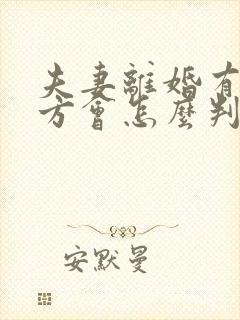 夫妻離婚有
方會怎麼判
安默曼